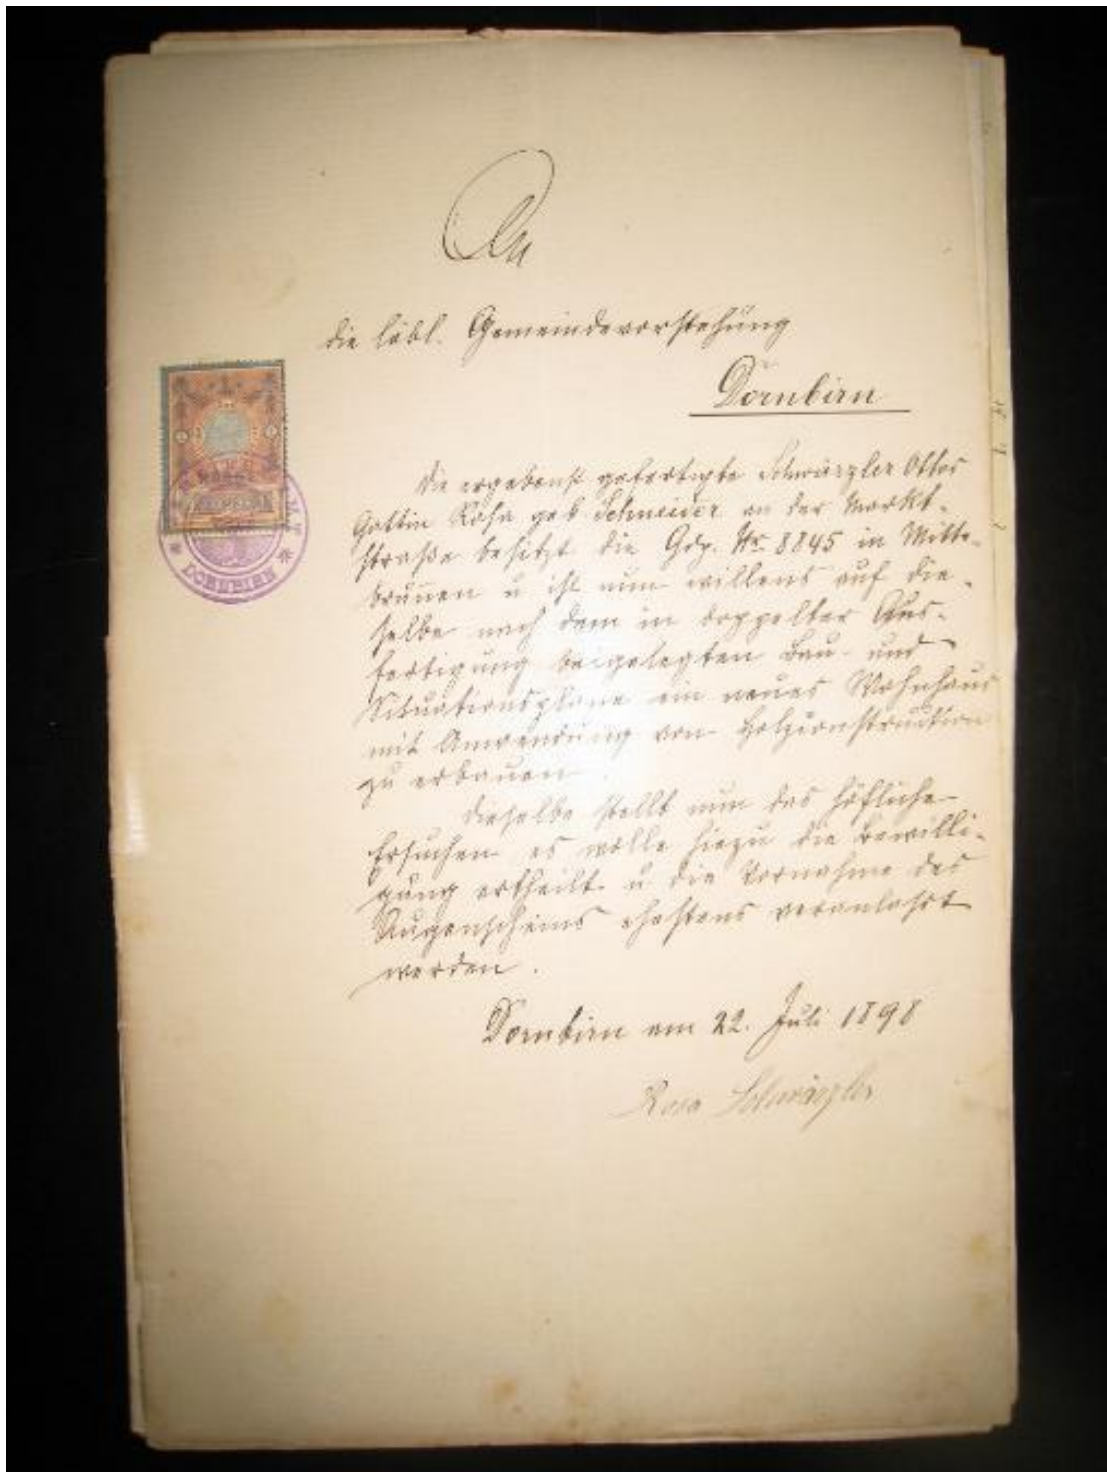 An
die löbl. Gemeindevorstehung
Dornbirn
Die ergebenst gefertigte Schwärzler Ottos
Gattin Rosa geb Schneider an der Markt-
straße besitzt die Gdp. Nr. 8845 in Mitte-
brunnen u ist nun willens auf die-
selbe nach dem in doppelter Aus-
fertigung beigelegten Bau- und
Situationsplane ein neues Wohnhaus
mit Anwendung von Holzconstruction
zu erbauen.
Dieselbe stellt nun das höfliche
Ersuchen es wolle hiezu die Bewilli-
gung ertheilt u die Vornahme des
Augenscheins ehestens veranlaßt
werden.
Dornbirn am 22. Juli 1898
Rosa Schwärzler
DORNBIRN